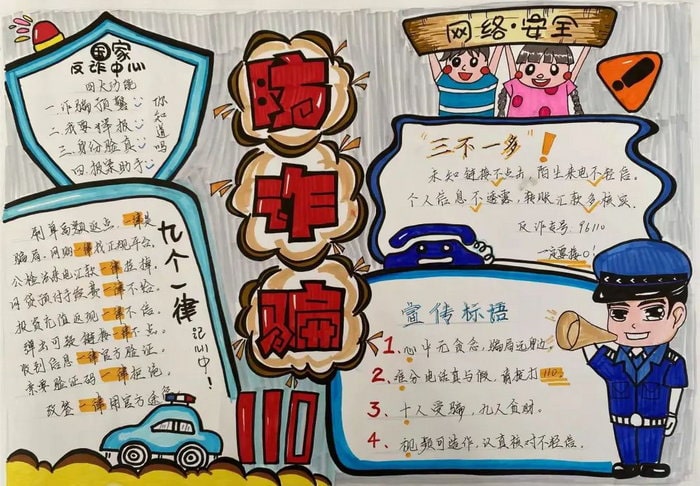 国家
反诈中心
四大功能
一.诈骗预警
二.我要举报
三.身份验真
四.报案助手
你知道吗
防诈骗
网络·安全
"三不一多"！
未知链接不点击，陌生来电不轻信。
个人信息不透露，转账汇款多核实。
反诈专号 96110
一定要接！
九个一律
记心中！
刷单高额返点，一律是
骗局，网购一律找正规平台。
公检法来电汇款一律挂掉。
网贷预付手续费一律不轻。
投资充值返现一律不信。
弹出可疑链接一律不点。
收到信息一律官方验证。
索要验证码一律拒绝。
改签一律用官方途
110
宣传标语
1.心中无贪念，骗局远身边。
2.难分电话真与假，请拨打110。
3.十人受骗，九人贪财。
4.视频可造作，认真核对不轻信。